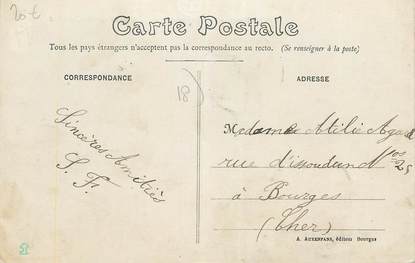 20 €
Carte Postale
Tous les pays étrangers n'acceptent pas la correspondance au recto. (Se renseigner à la poste)
CORRESPONDANCE
ADRESSE
18
Sincères Amitiés
S. F.
Madame Atilie
rue d'issoudun Nos 25
à Bourges
(Cher)
A. AUXENFANS, éditeur Bourges